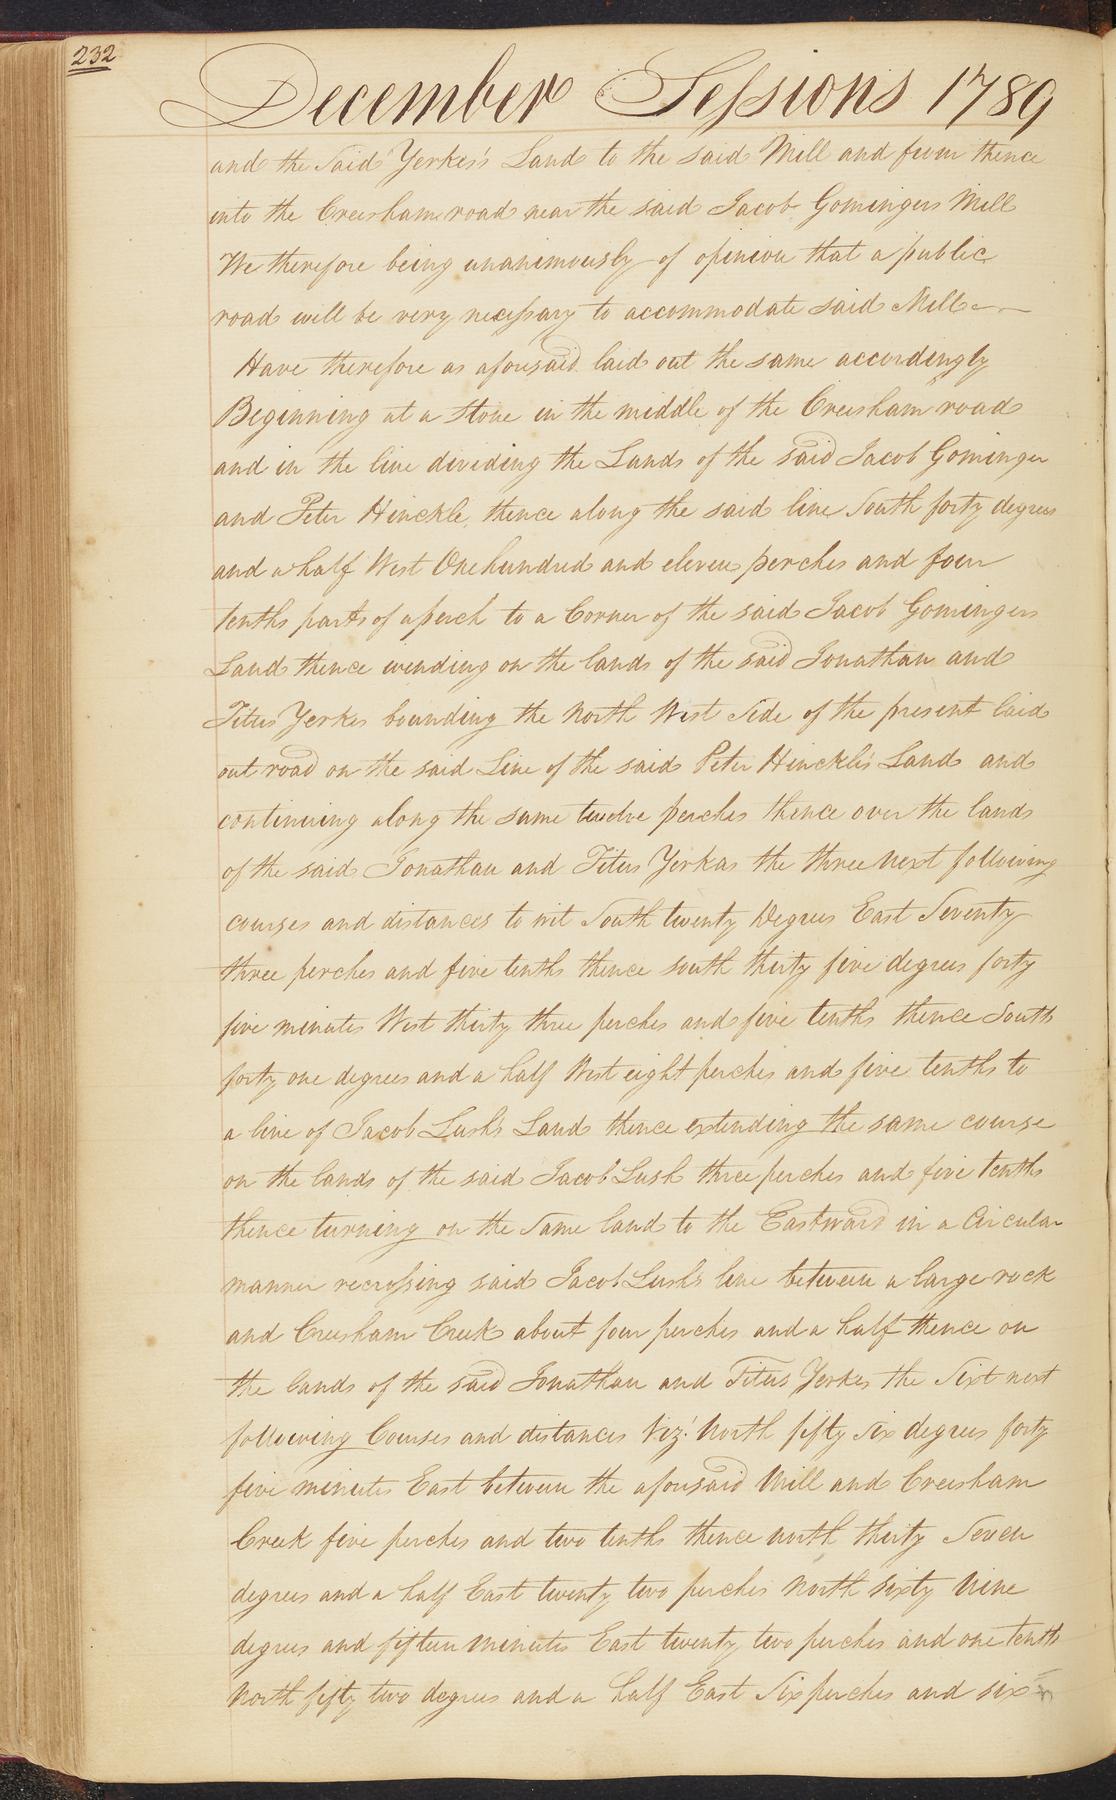 232
December Sessions 1789
and the Said Yerkes's Land to the said Mill and from thence
into the Creesham road near the said Jacob Gomingers Mill
We therefore being unanimously of opinion that a public
road will be very necessary to accommodate said Mill
Have therefore as aforesaid laid out the same accordingly
Beginning at a Stone in the middle of the Creesham road
and in the line dividing the Lands of the said Jacob Gominger
and Peter Hinckle, thence along the said line South forty degrees
and a half West One hundred and eleven perches and four
tenths parts of a perch to a Corner of the said Jacob Gomingers
Land thence extending on the lands of the said Jonathan and
Titus Yerkes bounding the North West Side of the present laid
out road on the said Line of the said Peter Hinckle's Land and
continuing along the same twelve perches thence over the lands
of the said Jonathan and Titus Yerkas the three next following
courses and distances to wit South twenty Degrees East Seventy
three perches and five tenths thence south thirty five degrees forty
five minutes West thirty three perches and five tenths thence South
forty one degrees and a half West eight perches and five tenths to
a line of Jacob Lush's Land thence extending the same course
on the lands of the said Jacob Lush three perches and five tenths
thence turning on the Same land to the Eastward in a Circular
manner recrossing said Jacob Lush's line between a large rock
and Creesham Creek about four perches and a half thence on
the lands of the said Jonathan and Titus Yerkes the Sixt next
following Courses and distances Viz.t North fifty Six degrees forty
five minutes East between the aforesaid Mill and Creesham
Creek five perches and two tenths thence north thirty Seven
degrees and a half East twenty two perches North Sixty Nine
degrees and fifteen Minutes East twenty two perches and one tenth
North fifty two degrees and a half East Six perches and six